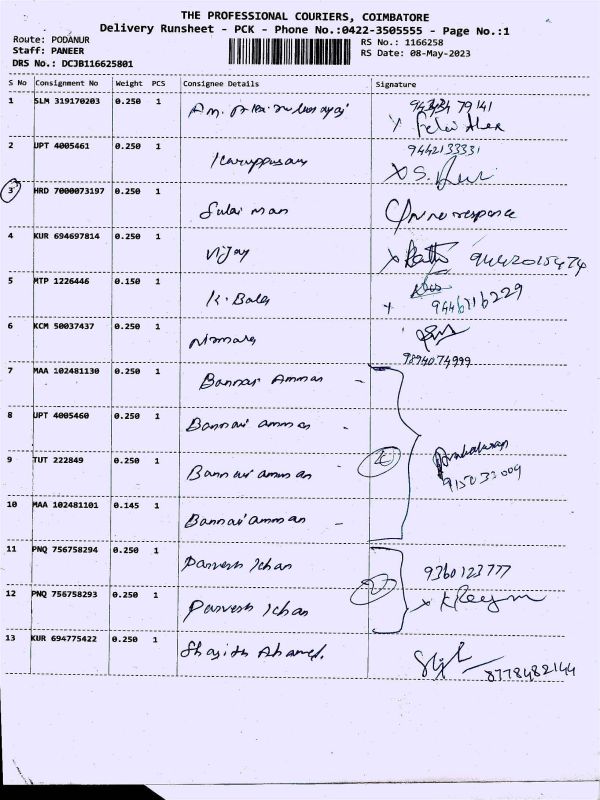 THE PROFESSIONAL COURIERS, COIMBATORE
Delivery Runsheet - PCK - Phone No.:0422-3505555 - Page No.:1
Route: PODANUR RS No.: 1166258
Staff: PANEER RS Date: 08-May-2023
DRS No.: DCJB116625801
S No Consignment No Weight PCS Consignee Details Signature
1 SLM 319170203 0.250 1
2 UPT 4005461 0.250 1 Karuppusamy 9442133331
3 HRD 7000073197 0.250 1 Sulai man No response
4 KUR 694697814 0.250 1 Vijay 9442015474
5 MTP 1226446 0.150 1 K. Bala 9446116229
6 KCM 50037437 0.250 1 Nirmala 9894074999
7 MAA 102481130 0.250 1 Bannari Amman
8 UPT 4005460 0.250 1 Bannari amman
9 TUT 222849 0.250 1 Bannari amman 4
10 MAA 102481101 0.145 1 Bannari amman
11 PNQ 756758294 0.250 1 Parvesh Khan 9360123777
12 PNQ 756758293 0.250 1 Parvesh Khan 2
13 KUR 694775422 0.250 1 Shajith Ahamed. 8778482144